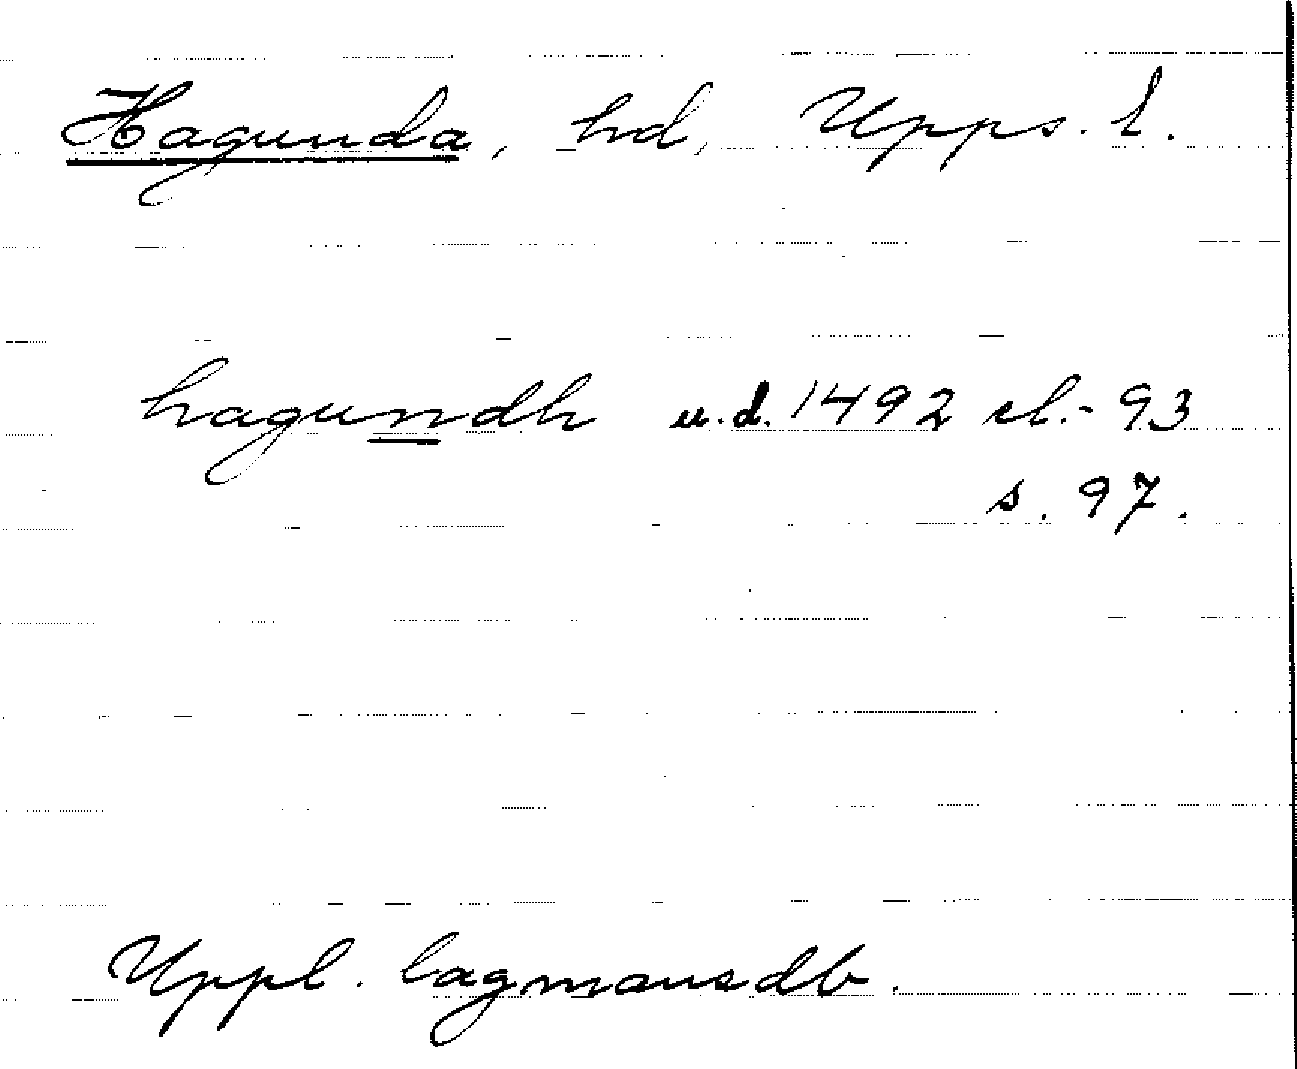 Hagunda, hd, Upps. l.
hagundh u.d. 1492 el. -93
s. 97.
Uppl. lagmansdb.